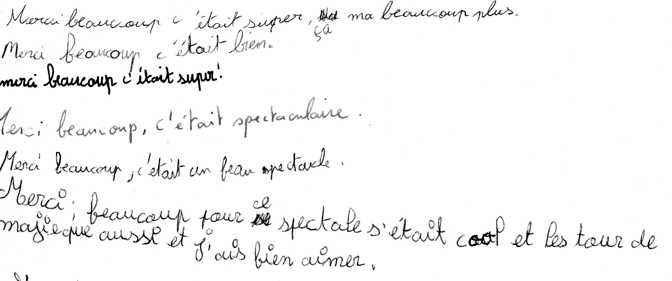 Merci beaucoup c'était super, ça ma beaucoup plus.
Merci beaucoup c'était bien.
merci beaucoup c'était super!
Merci beaucoup, c'était spectaculaire.
Merci beaucoup, c'était un beau spectacle.
Merci; beaucoup pour ce spectale s'était cool et les tour de
majieque aussi et j'ais bien aimer.